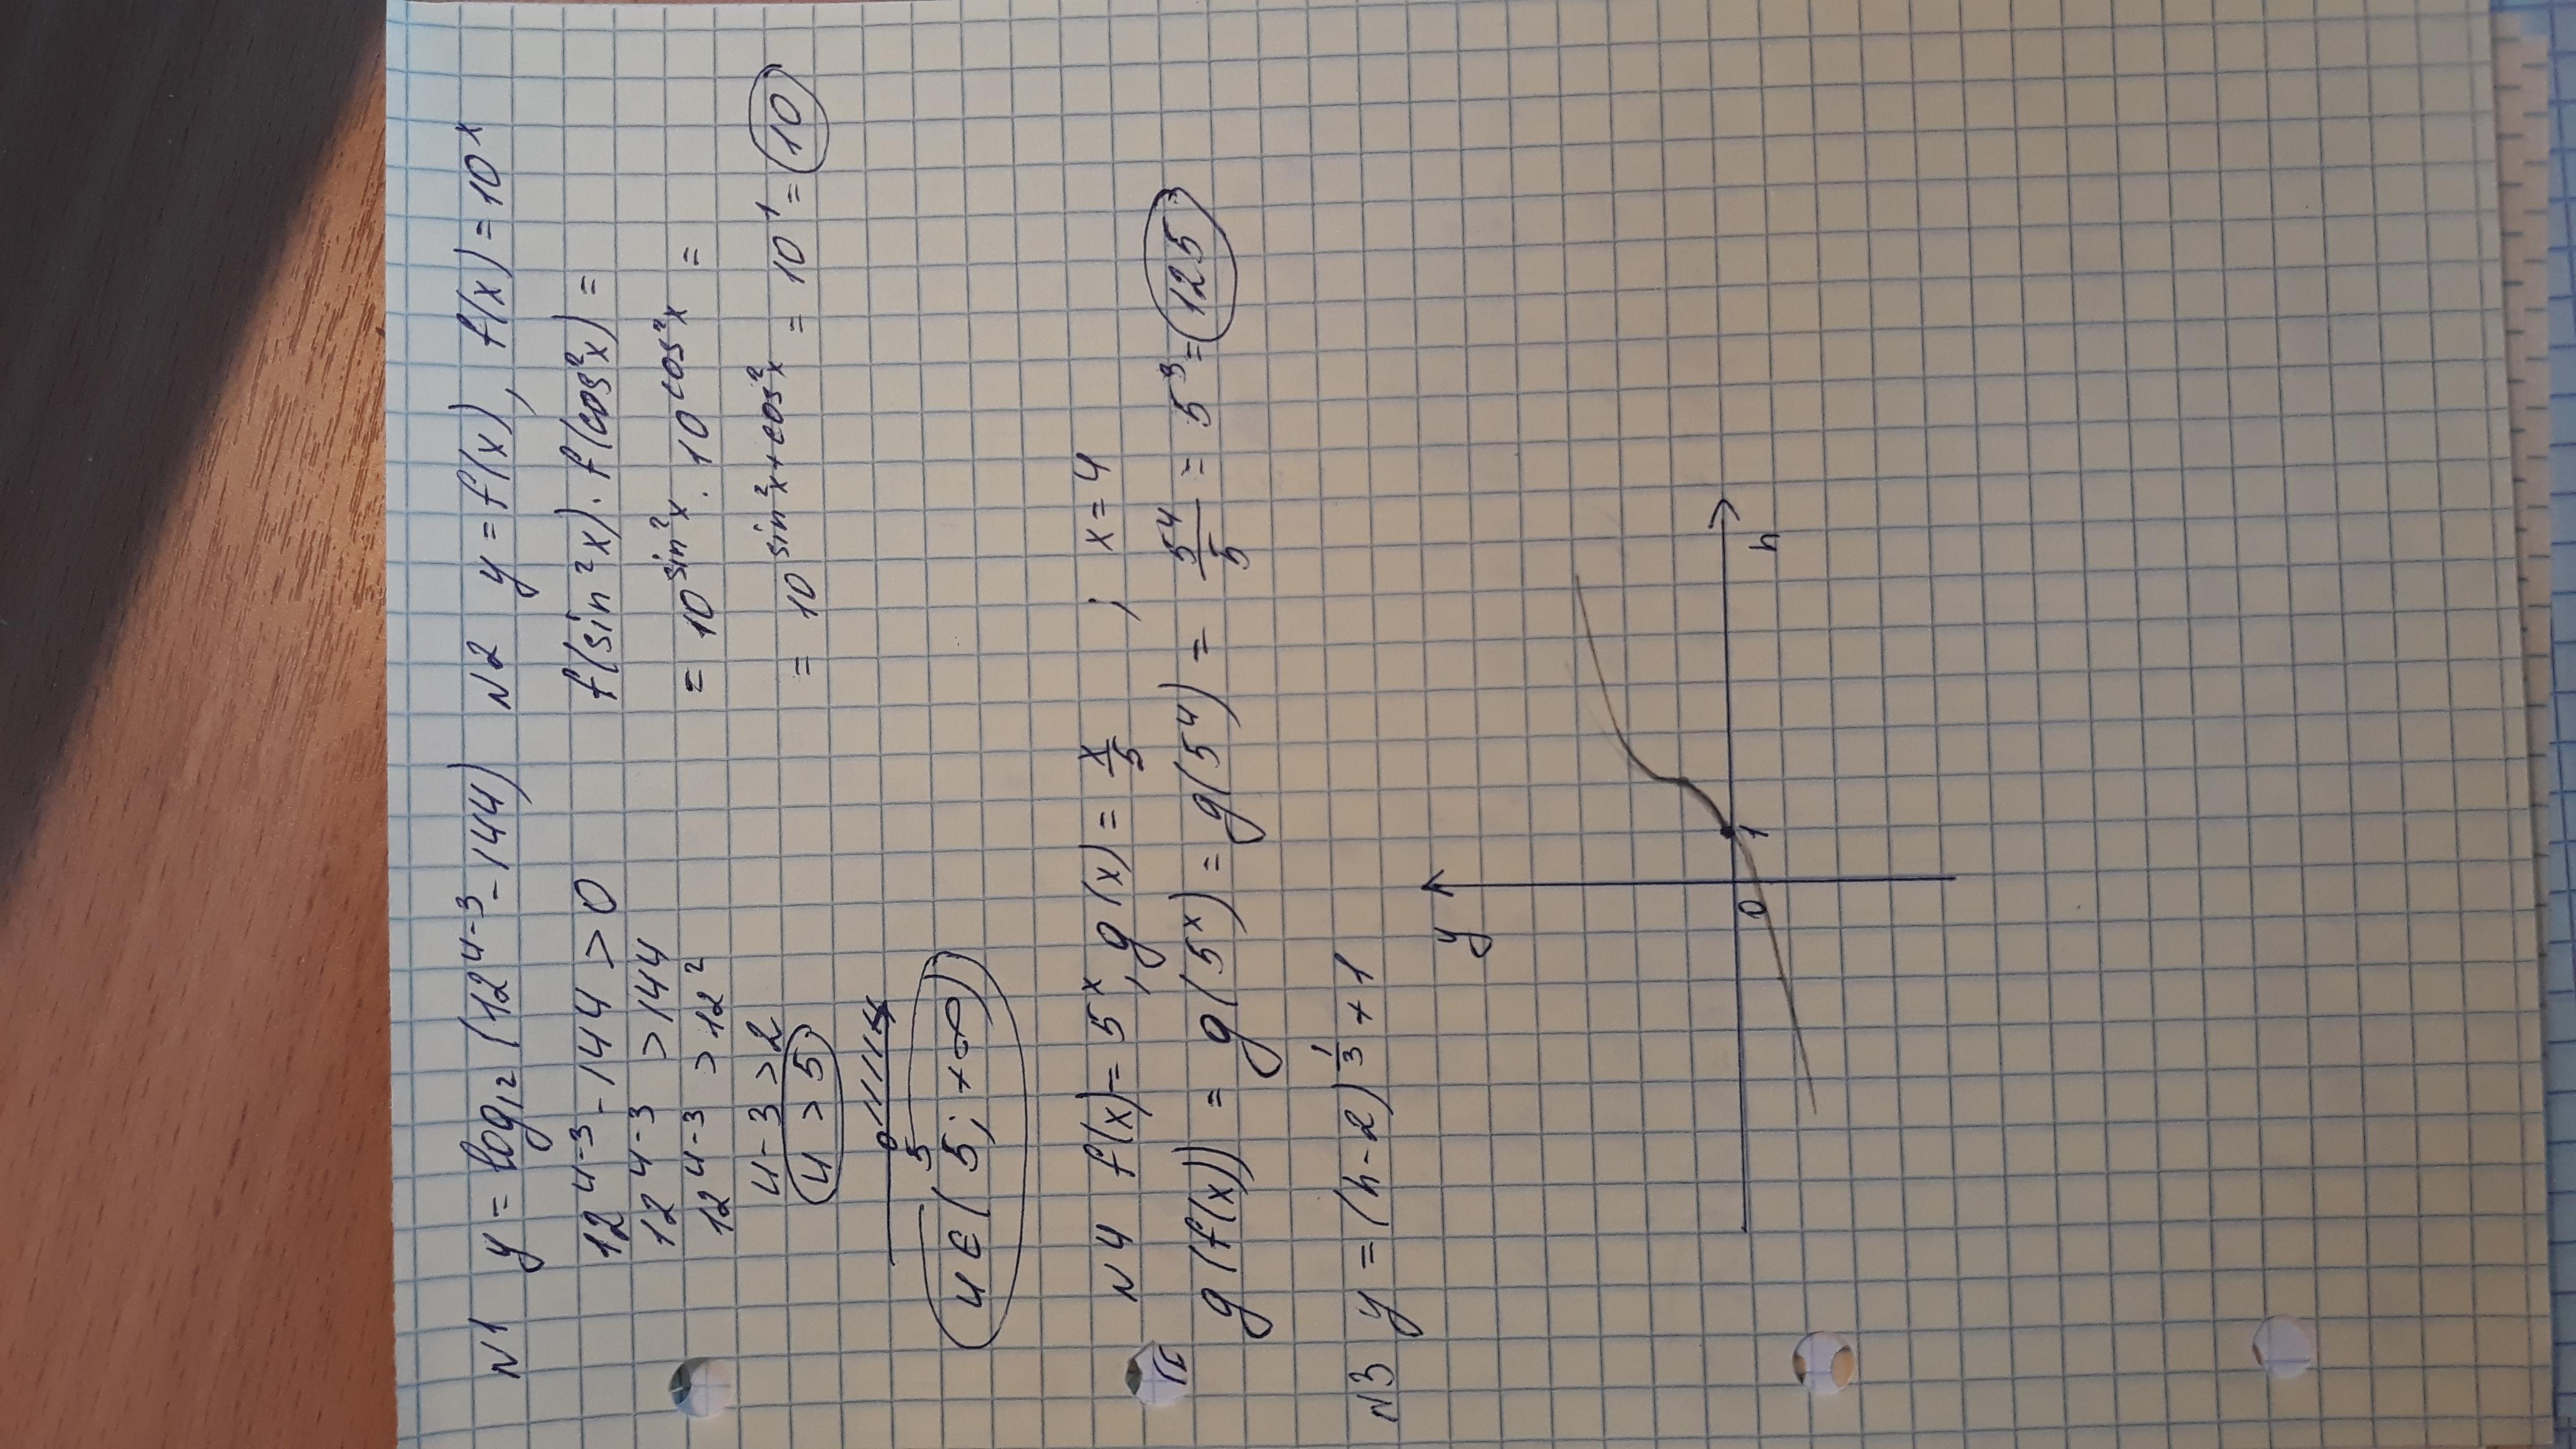 N1 y = log₁₂(12^(4-3) - 144)
12^(4-3) - 144 > 0
12^(4-3) > 144
12^(4-3) > 12²
4-3 > 2
4 > 5
5
4 ∈ (5; +∞)
N2 y = f(x), f(x) = 10^x
f(sin²x) · f(cos²x) =
= 10^(sin²x) · 10^(cos²x) =
= 10^(sin²x+cos²x) = 10¹ = 10
N4 f(x) = 5^x, g(x) = x/5 ; x = 4
g(f(x)) = g(5^x) = g(5⁴) = 5⁴/5 = 5³ = 125
N3 y = (h-2)^(1/3) + 1
y
0 1 h